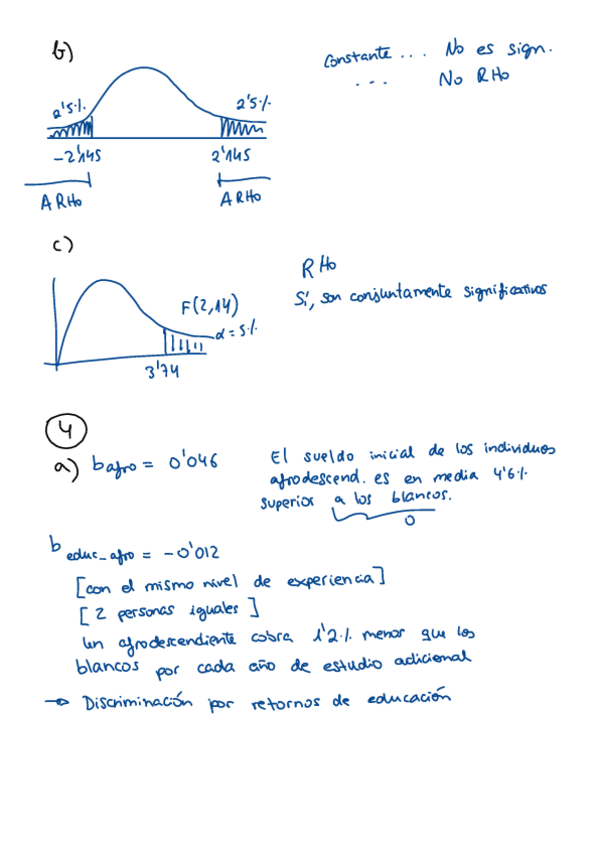 b)
Constante ... No es sign.
... No RHo
2'5% 2'5%
-2'145 2'145
ARHo ARHo
c)
RHo
Sí, son conjuntamente significativos
F(2,14)
α = 5%
3'74
4
a) b afro = 0'046
El sueldo inicial de los individuos
afrodescend. es en media 4'6%
superior a los blancos.
0
b educ_afro = -0'012
[con el mismo nivel de experiencia]
[2 personas iguales]
Un afrodescendiente cobra 1'2% menor que los
blancos por cada año de estudio adicional
→ Discriminación por retornos de educación